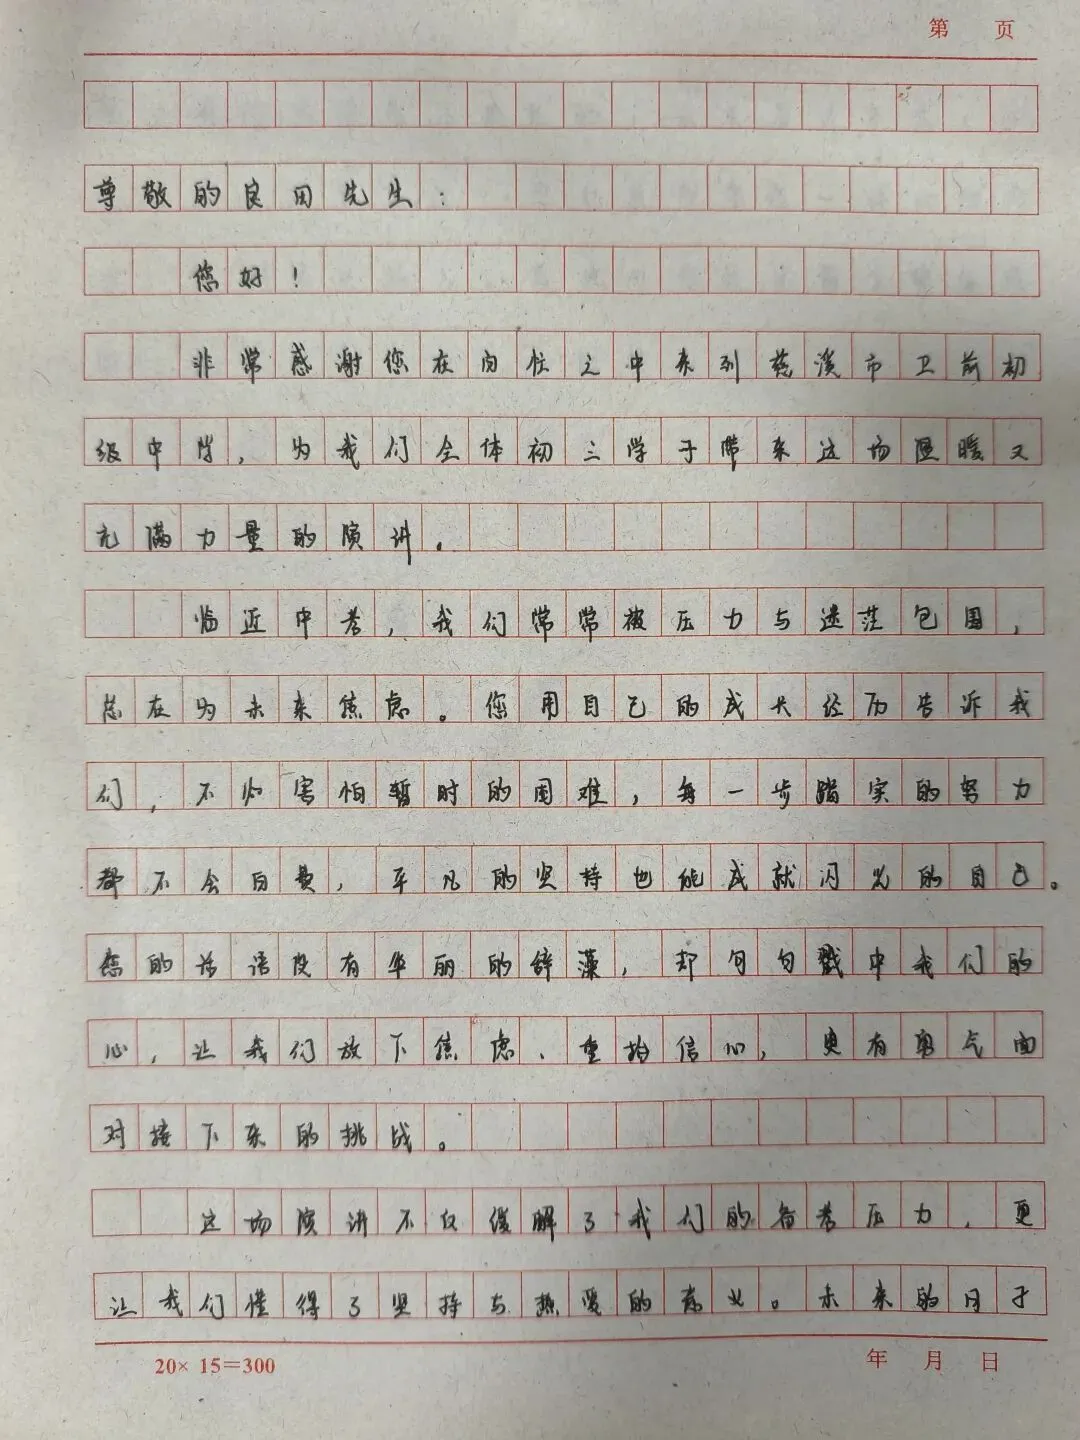 第 页
尊敬的良田先生：
您好！
非常感谢您在百忙之中来到慈溪市卫前初
级中学，为我们全体初三学子带来这场温暖又
充满力量的演讲。
临近中考，我们常常被压力与迷茫包围，
总在为未来焦虑。您用自己的成长经历告诉我
们，不必害怕暂时的困难，每一步踏实的努力
都不会白费，平凡的坚持也能成就闪光的自己。
您的话语没有华丽的辞藻，却句句戳中我们的
心，让我们放下焦虑、重拾信心，更有勇气面
对接下来的挑战。
这场演讲不仅缓解了我们的备考压力，更
让我们懂得了坚持与热爱的意义。未来的日子
20×15=300
年 月 日